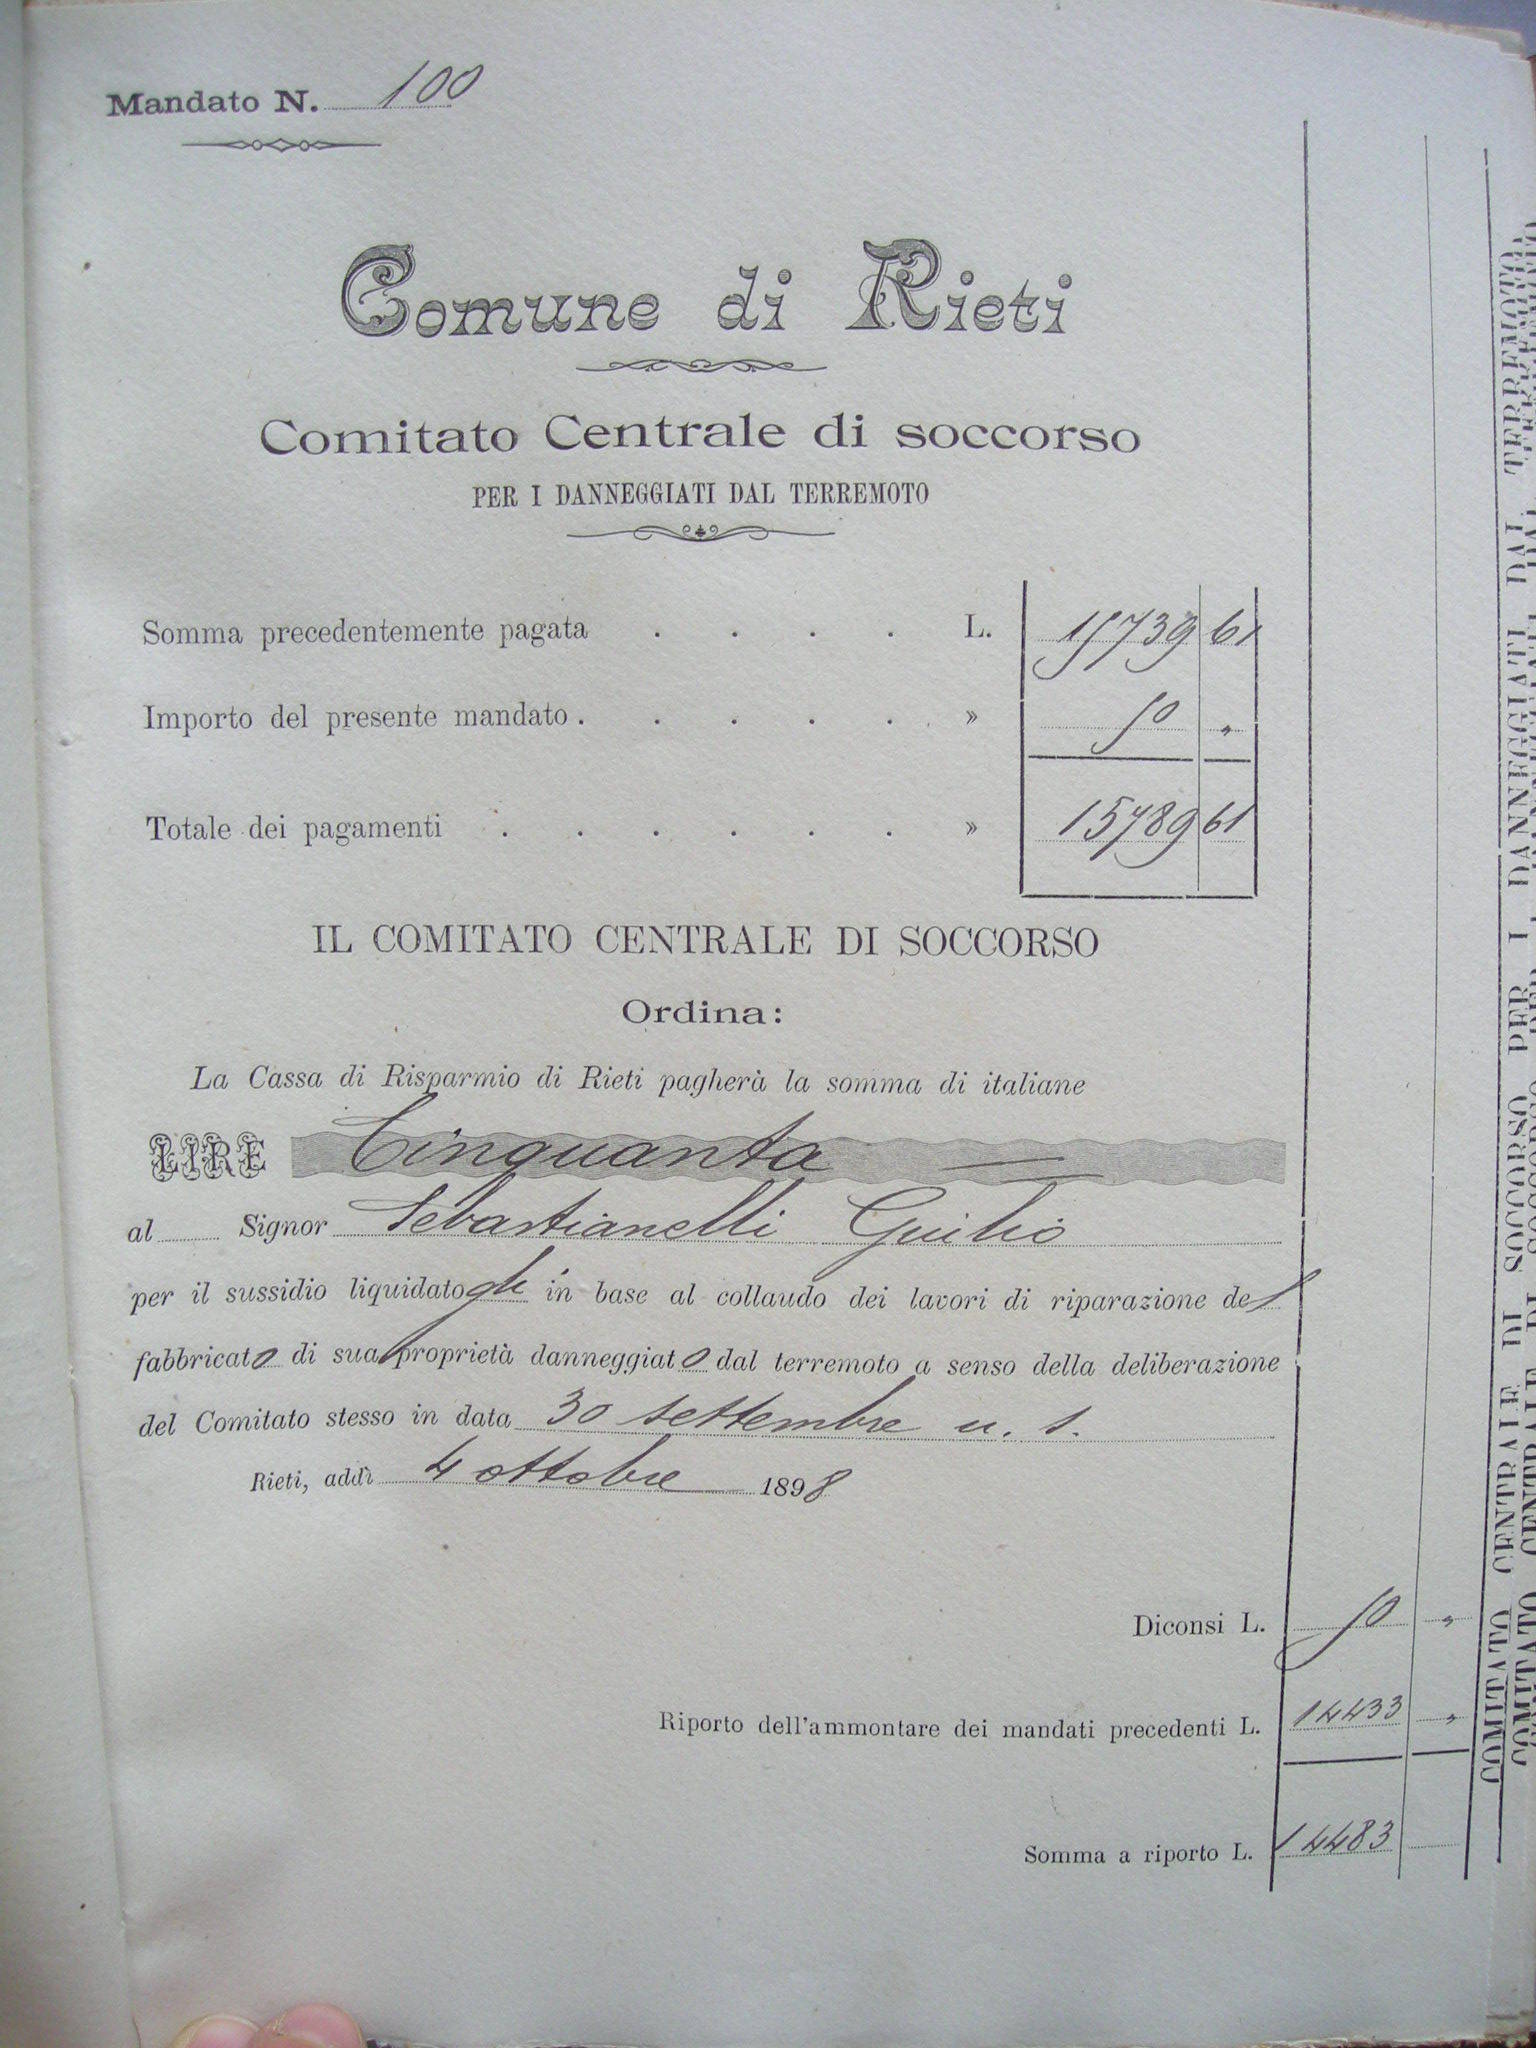 Mandato N. 100
Comune di Rieti
Comitato Centrale di soccorso
PER I DANNEGGIATI DAL TERREMOTO
Somma precedentemente pagata . . . . L. 15739 61
Importo del presente mandato . . . . . » 50 „
Totale dei pagamenti . . . . . . » 15789 61
IL COMITATO CENTRALE DI SOCCORSO
Ordina:
La Cassa di Risparmio di Rieti pagherà la somma di italiane
LIRE Cinquanta
al Signor Sebastianelli Giulio
per il sussidio liquidatogli in base al collaudo dei lavori di riparazione del
fabbricato di sua proprietà danneggiato dal terremoto a senso della deliberazione
del Comitato stesso in data 30 settembre u. s.
Rieti, addì 4 ottobre 1898
Diconsi L. 50 „
Riporto dell'ammontare dei mandati precedenti L. 14433 „
Somma a riporto L. 14483
COMITATO CENTRALE DI SOCCORSO PER I DANNEGGIATI DAL TERREMOTO